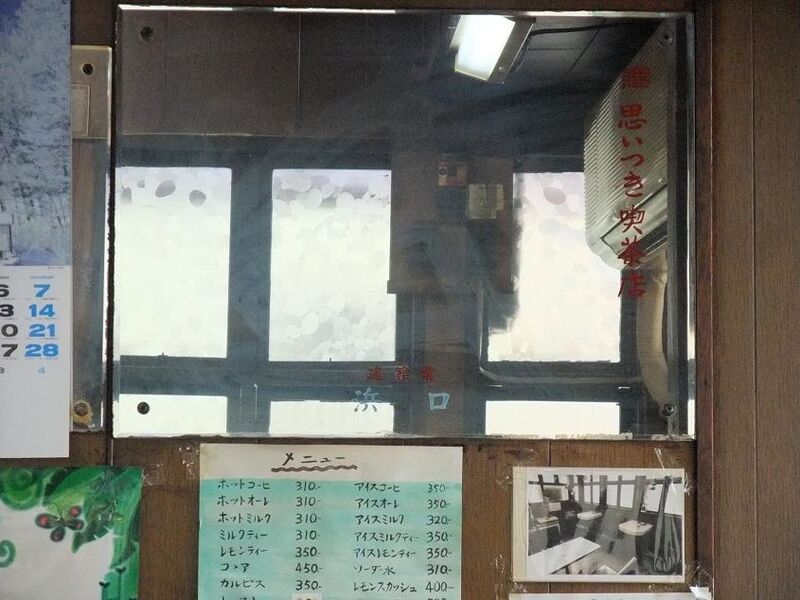 思いつき喫茶店
建築業
浜口
SATURDAY
6 7
3 14
0 21
7 28
4
メニュー
ホットコーヒ 310.-
ホットオーレ 310.-
ホットミルク 310-
ミルクティー 310.-
レモンティー 350.-
ココア 450-
カルピス 350.-
アイスコーヒ 350-
アイスオーレ 350.-
アイスミルク 320.-
アイスミルクティー 350.-
アイスレモンティー 350-
ソーダー水 310-
レモンスカッシュ 400-